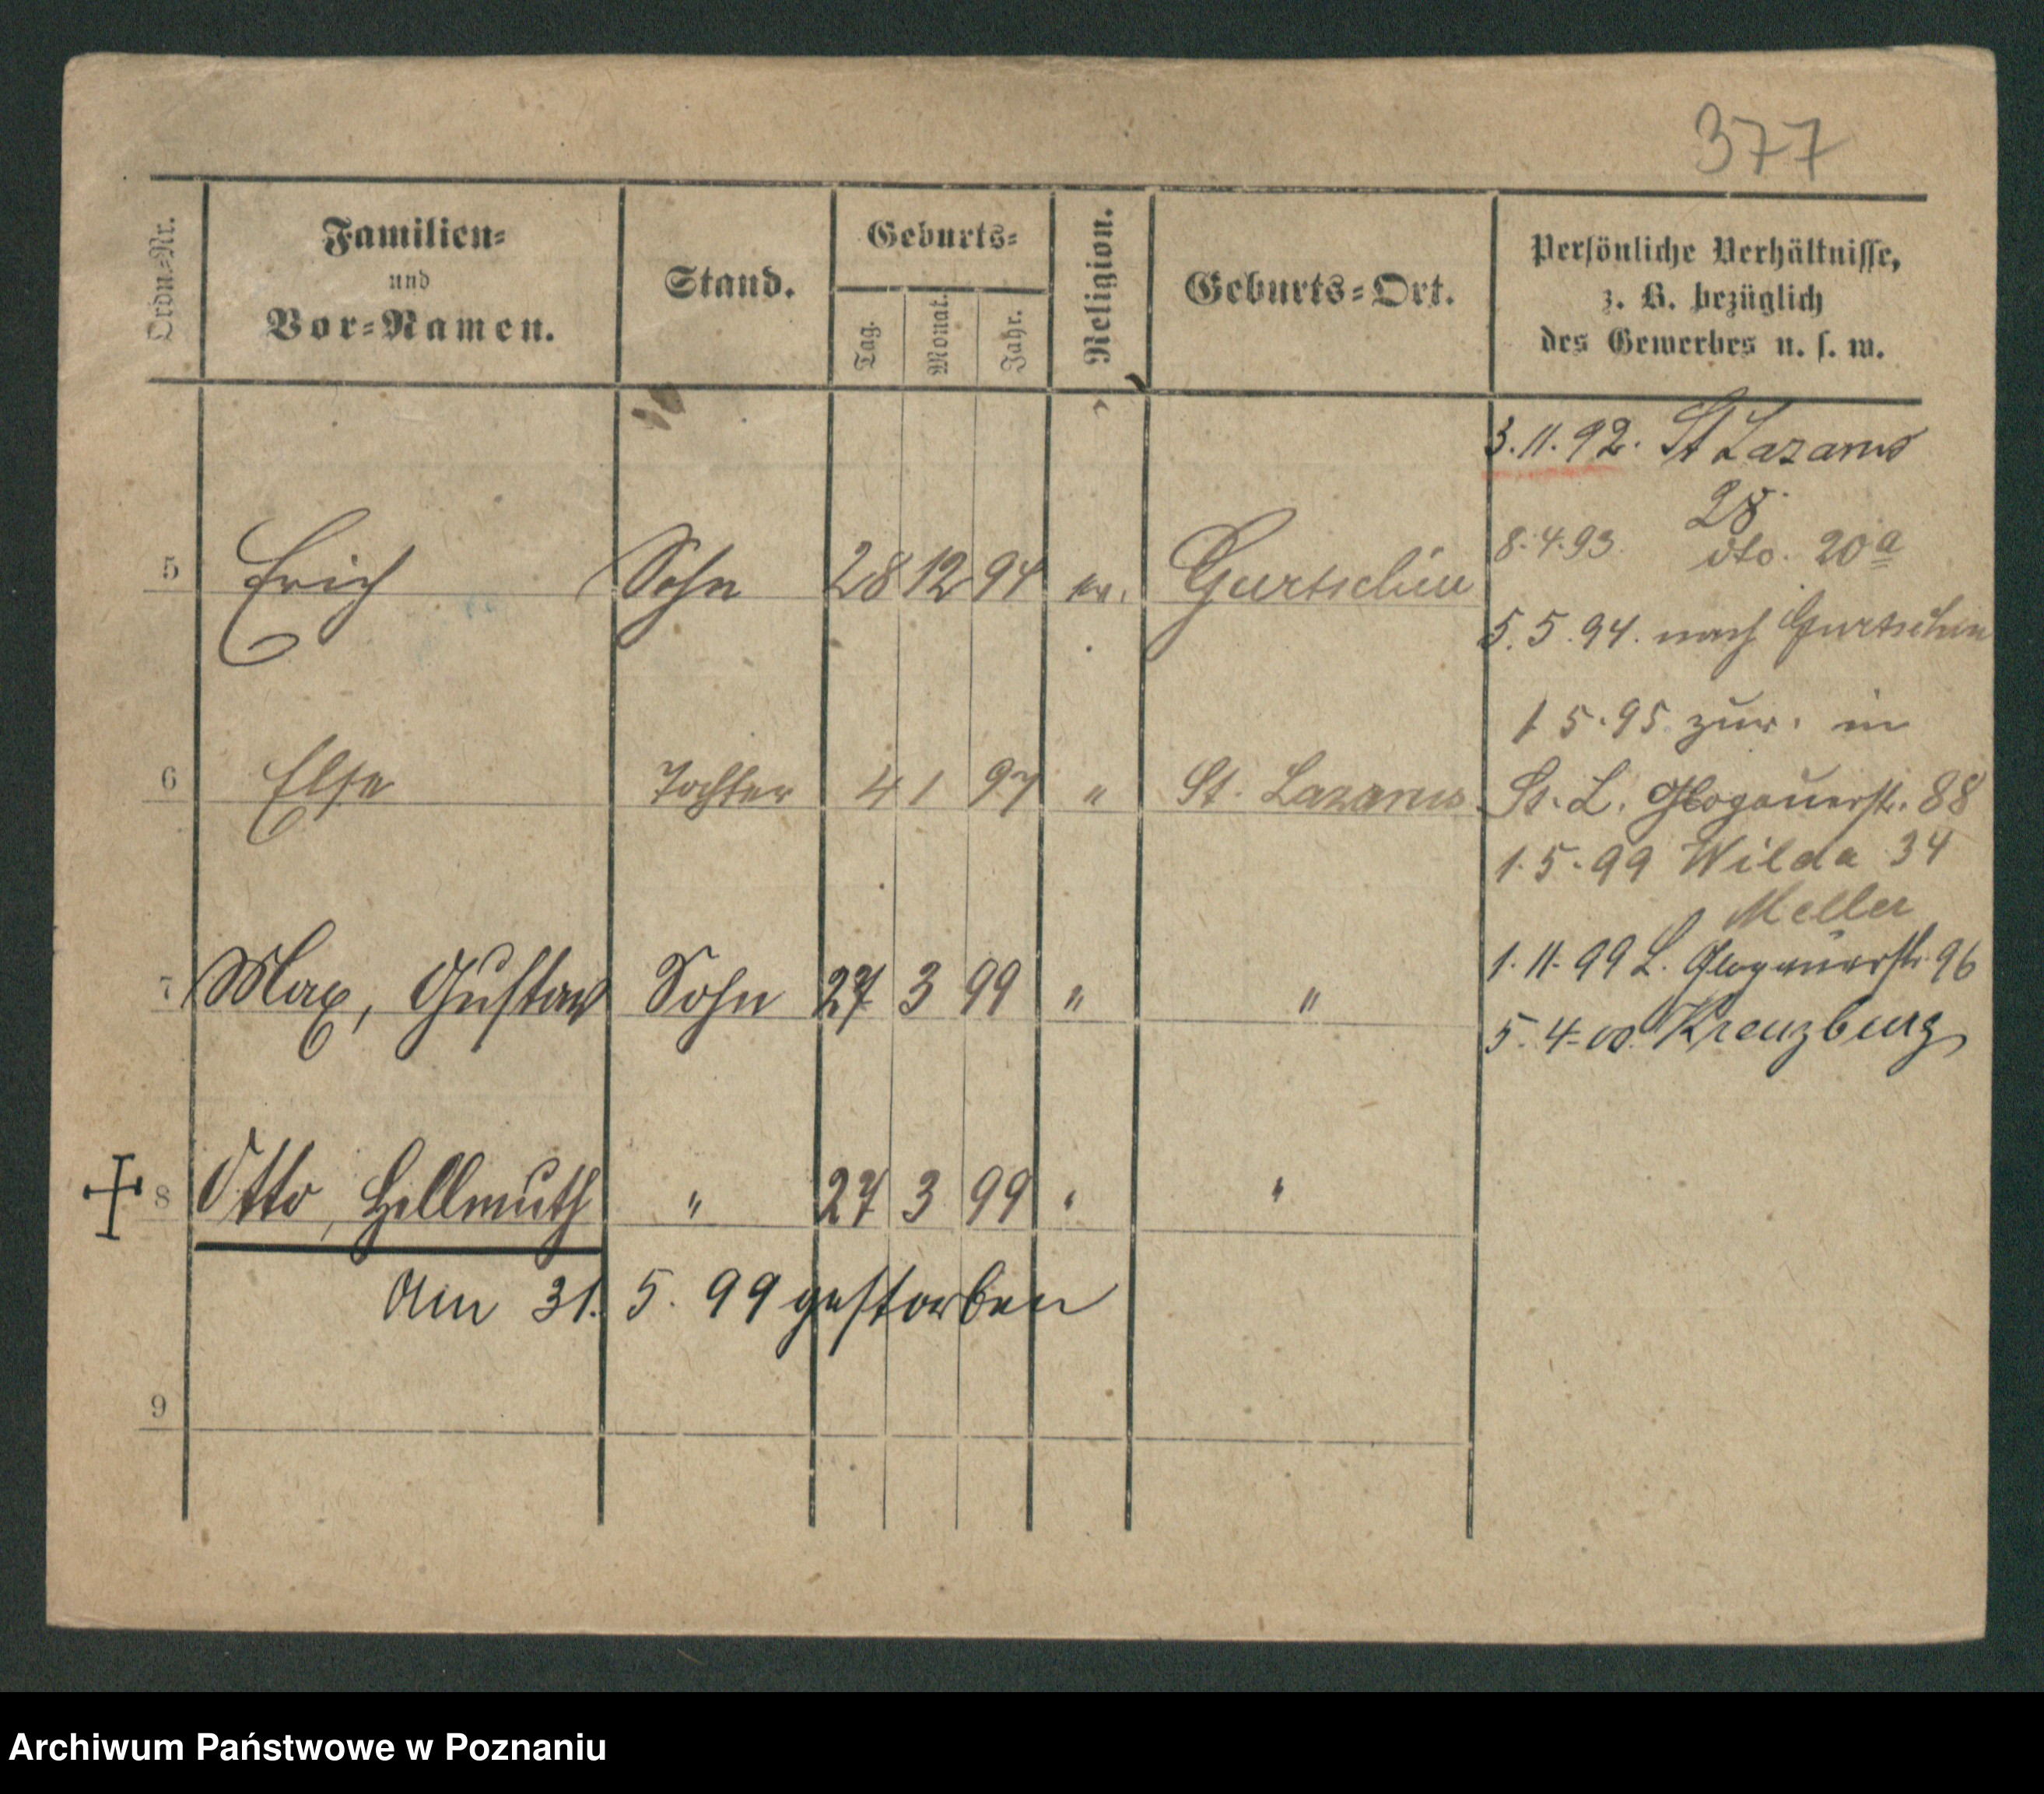 377
Ordn.-Nr.
Familien-
und
Vor-Namen.
Stand.
Geburts-
Tag.
Monat.
Jahr.
Religion.
Geburts-Ort.
Persönliche Verhältnisse,
z. B. bezüglich
des Gewerbes u. s. w.
3.11.92. St Lazarus
28.
8.4.93. dto. 20a
5 Erich Sohn 28 12 94 ev. Gurtschin
5.5.94. nach Gurtschin
1 5.95 zur. in
6 Else Tochter 4 1 97 " St. Lazarus
St. L. Glogauerstr. 88
1.5.99 Wilda 34
Meller
1.11.99 L. Glogauerstr. 96
7 Max, Gustav Sohn 27 3 99 " "
5.4.00. Kreuzburg
8 Otto, Hellmuth " 27 3 99 " "
Am 31. 5. 99 gestorben
9
Archiwum Państwowe w Poznaniu